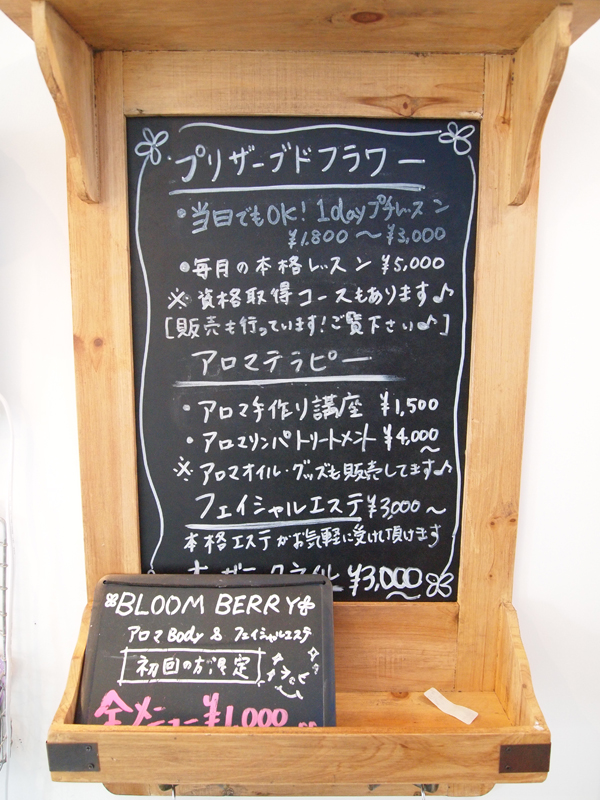 プリザーブドフラワー
・当日でもOK！1dayプチレッスン
¥1,800〜¥3,000
・毎月の本格レッスン ¥5,000
※資格取得コースもあります♪
[販売も行っています！ご覧下さい♪]
アロマテラピー
・アロマ手作り講座 ¥1,500
・アロマリンパトリートメント ¥4,000〜
※アロマオイル・グッズも販売してます♪
フェイシャルエステ ¥3,000〜
本格エステがお気軽に受けて頂けます
¥3,000〜
BLOOM BERRY
アロマBody & フェイシャルエステ
初回の方限定
全メニュー¥1,000